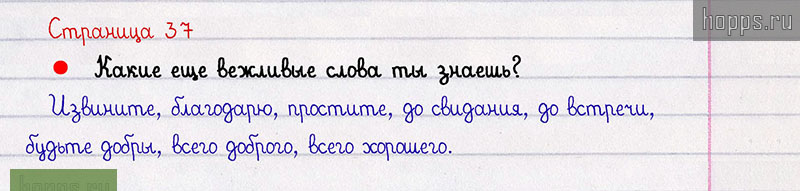 Страница 37
hopps.ru
Какие еще вежливые слова ты знаешь?
Извините, благодарю, простите, до свидания, до встречи,
будьте добры, всего доброго, всего хорошего.
hopps.ru